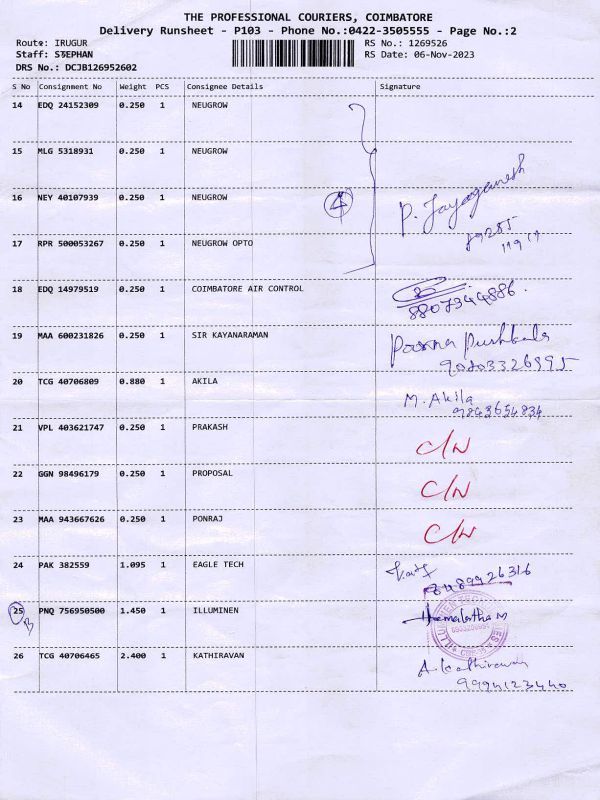 THE PROFESSIONAL COURIERS, COIMBATORE
Delivery Runsheet - P103 - Phone No.:0422-3505555 - Page No.:2
Route: IRUGUR RS No.: 1269526
Staff: STEPHAN RS Date: 06-Nov-2023
DRS No.: DCJB126952602
S No Consignment No Weight PCS Consignee Details Signature
14 EDQ 24152309 0.250 1 NEUGROW
15 MLG 5318931 0.250 1 NEUGROW
16 NEY 40107939 0.250 1 NEUGROW 4 P. Jayaganesh
17 RPR 500053267 0.250 1 NEUGROW OPTO 89285
18 EDQ 14979519 0.250 1 COIMBATORE AIR CONTROL
8807344886
19 MAA 600231826 0.250 1 SIR KAYANARAMAN
20 TCG 40706809 0.880 1 AKILA M. Akila
9843654834
21 VPL 403621747 0.250 1 PRAKASH C/N
22 GGN 98496179 0.250 1 PROPOSAL C/N
23 MAA 943667626 0.250 1 PONRAJ C/N
24 PAK 382559 1.095 1 EAGLE TECH
8489926316
25 PNQ 756950500 1.450 1 ILLUMINEN Hemalatha M
26 TCG 40706465 2.400 1 KATHIRAVAN A. Kathiravan
9994123440